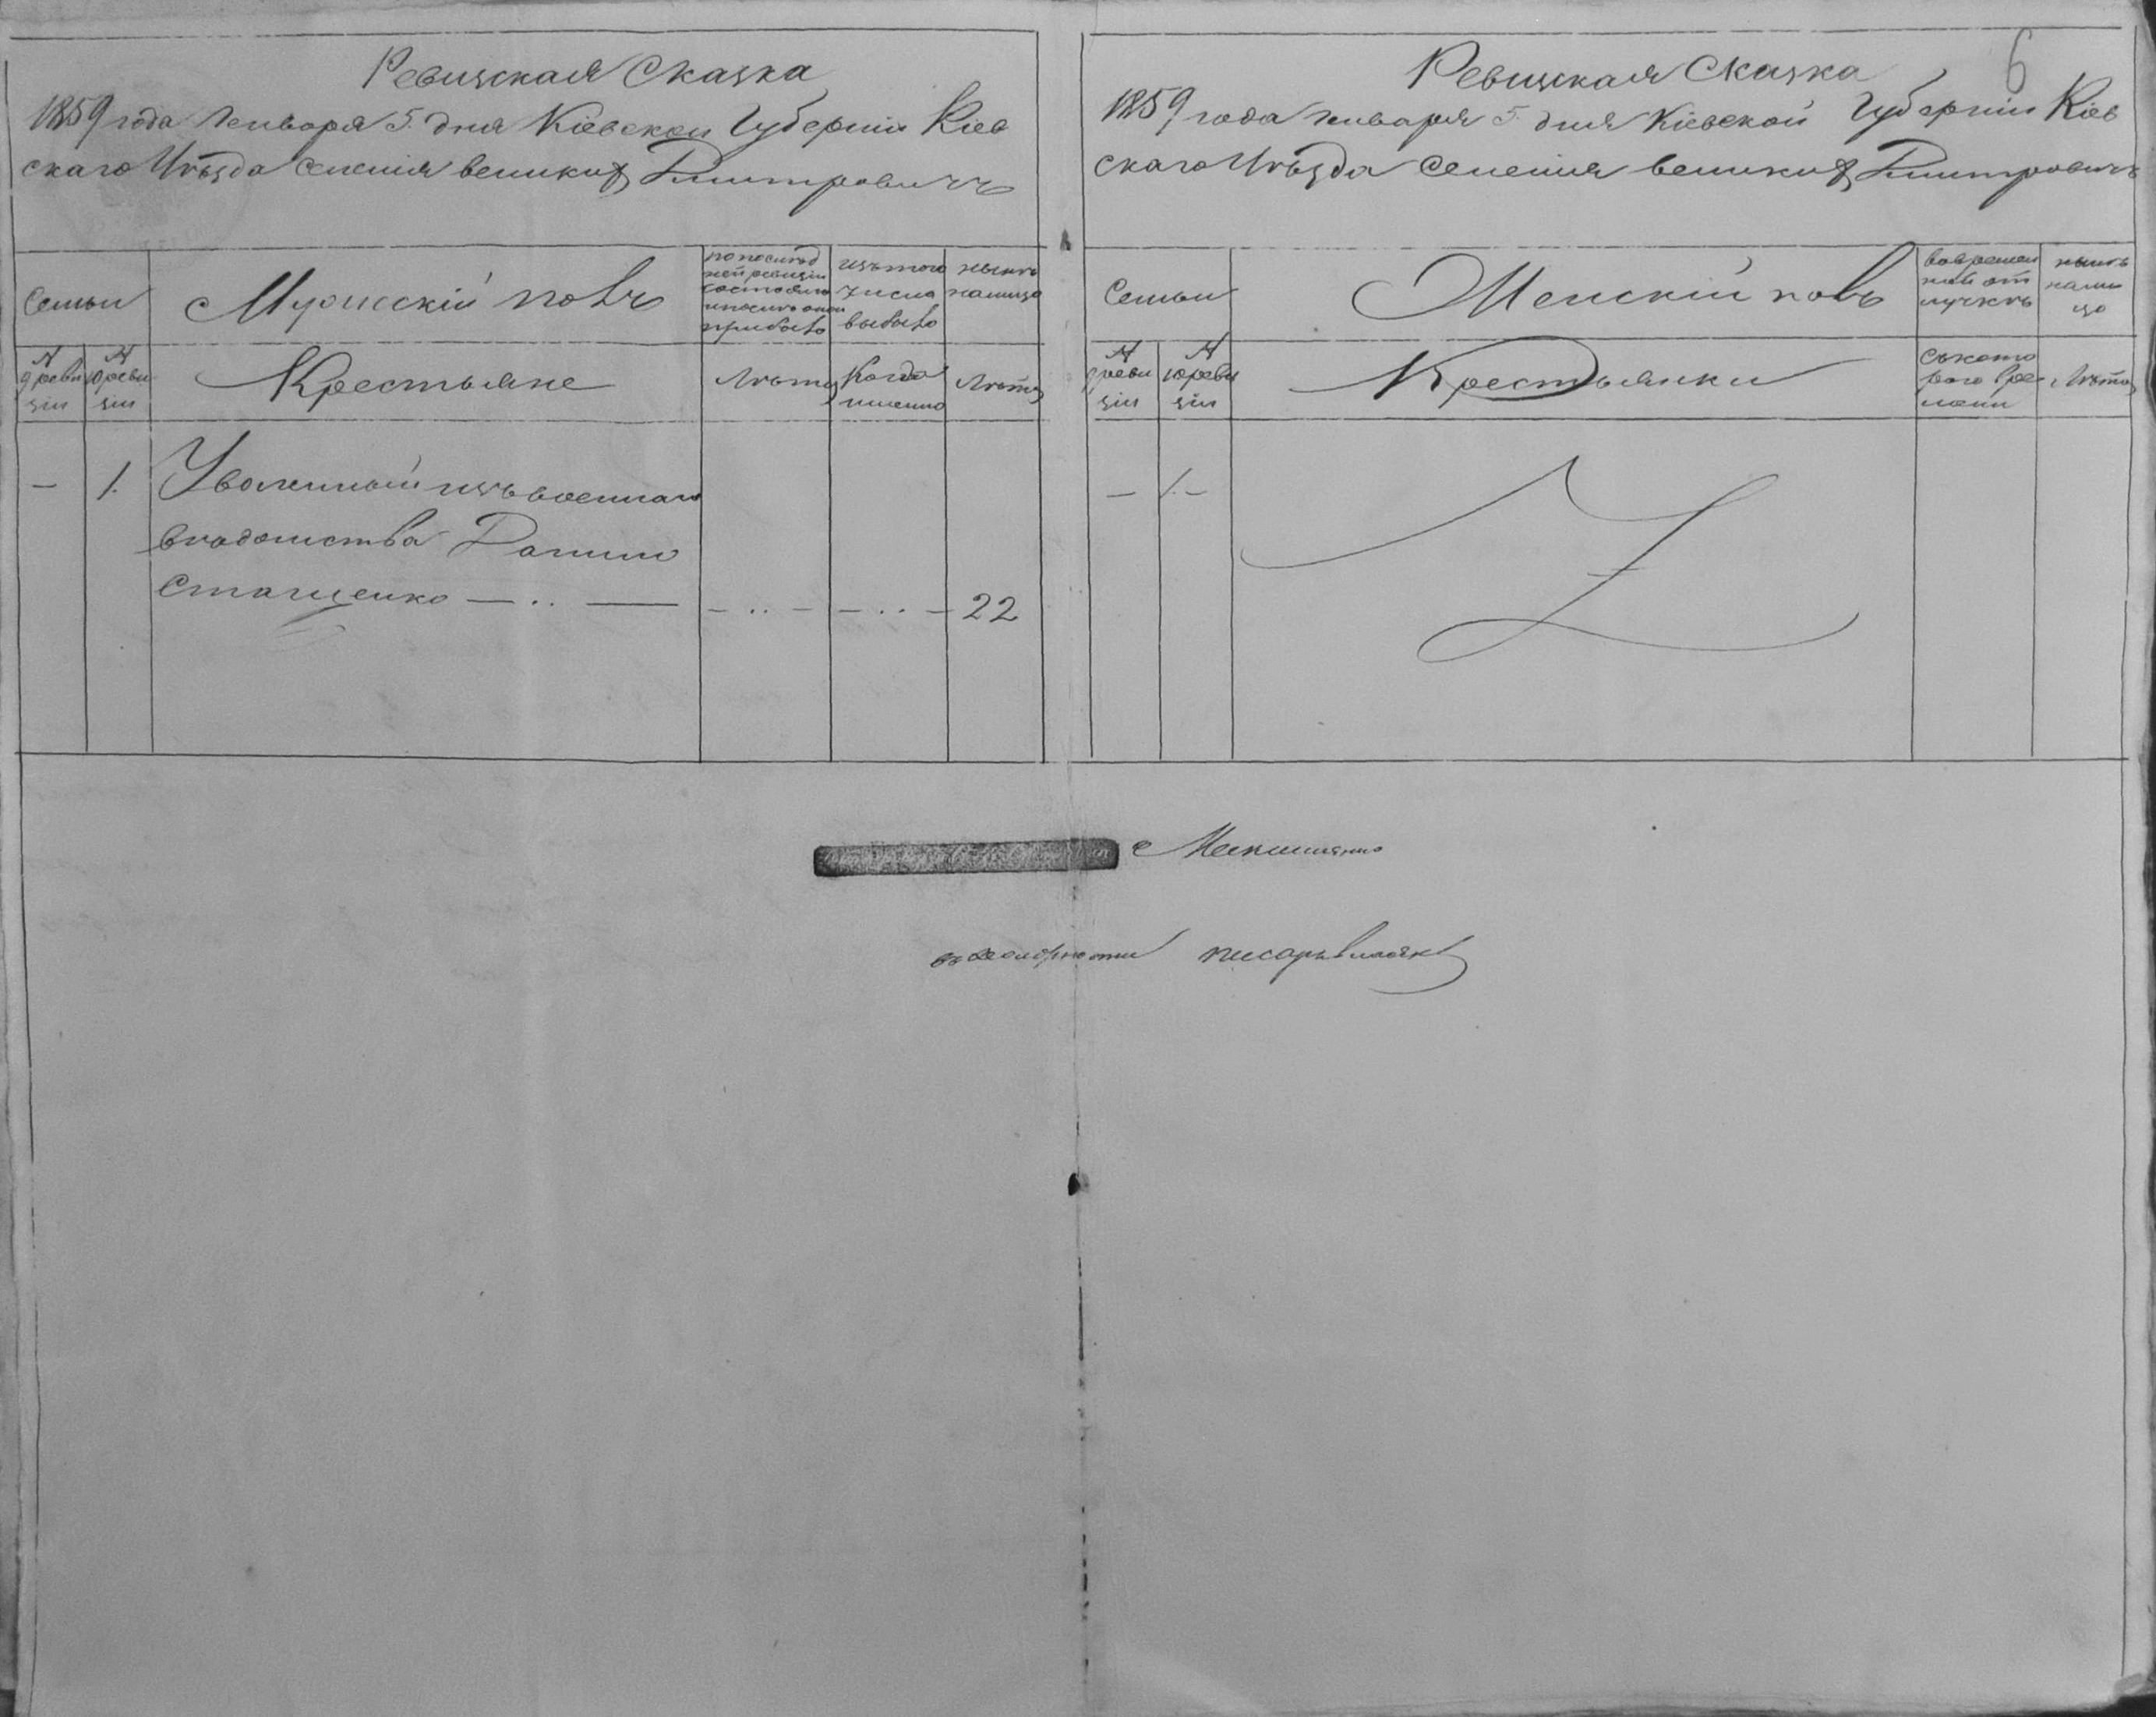 Ревизская Сказка
1859 года Генваря 5 дня Кіевской Губерніи Кіев
скаго Уѣзда Селенія великихъ Дмитровичъ
Семьи
Мужескій полъ
по послѣд
ней ревизіи
состояло
и послѣ оной
прибыло
изъ того
числа
выбыло
нынѣ
налицо
№
9 реви
зіи
№
10 реви
зіи
Крестьяне
Лѣта
Когда
именно
Лѣта
— 1. Уволенный изъ военнаго
вѣдомства Данило
Стащенко — .. — - .. - - .. - 22
6
Ревизская Сказка
1859 года Генваря 5 дня Кіевской Губерніи Кіев
скаго Уѣзда Селенія великихъ Дмитровичъ
Семьи
Женскій полъ
во времен
ной от
лучкѣ
нынѣ
нали
цо
№
9 реви
зіи
№
10 реви
зіи
Крестьянки
съ кото
раго вре
мени
Лѣта
— 1. —
писарь